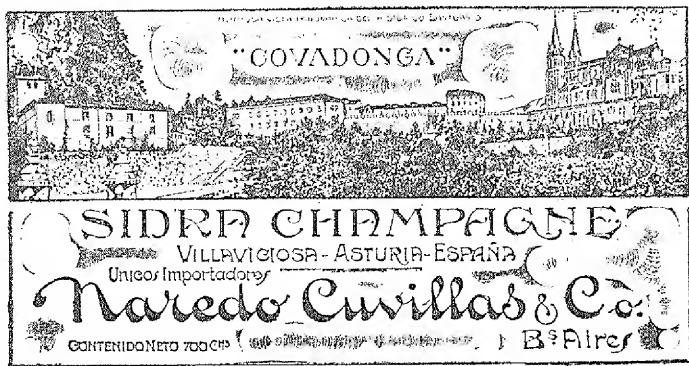 "COVADONGA"
SIDRA CHAMPAGNE
VILLAVICIOSA - ASTURIA - ESPAÑA
Unicos Importadores
Naredo Cuvillas & Co.
CONTENIDO NETO 700 CM³
Bˢ Aires